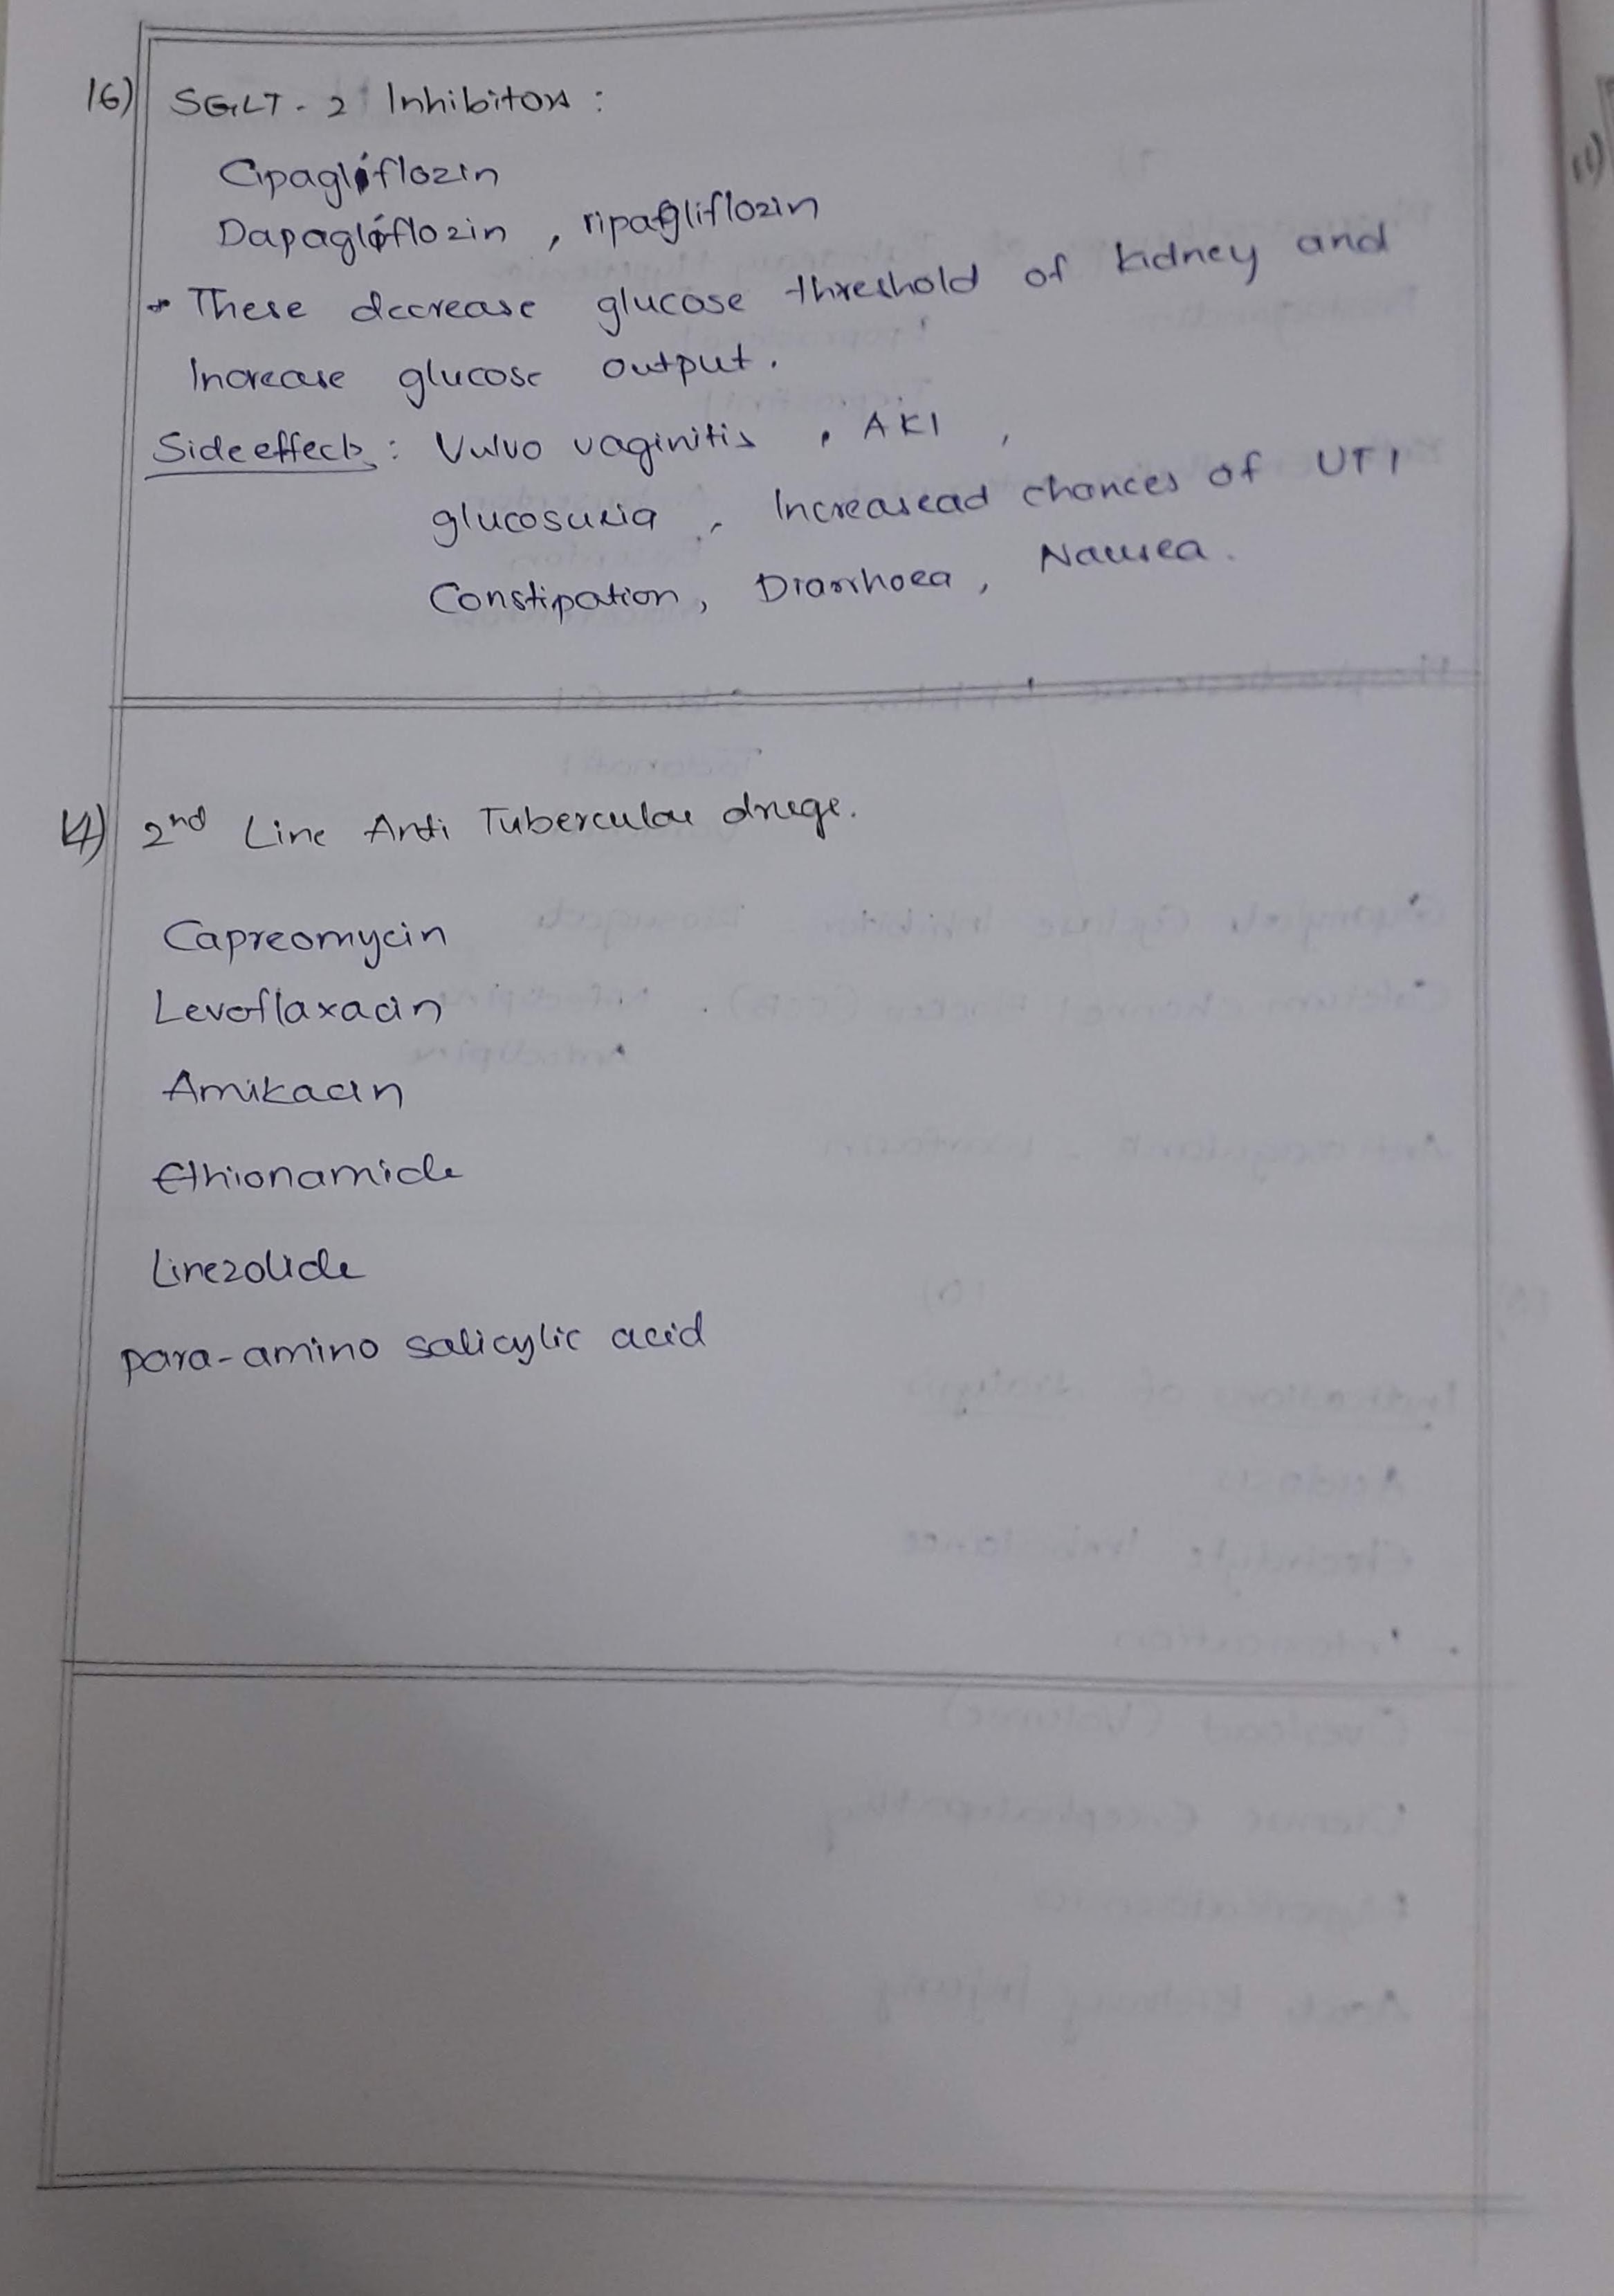 16) SGLT-2 Inhibitors :
Cipagliflozin
Dapagliflozin , ripagliflozin
These decrease glucose threshold of kidney and
Increase glucose output.
Side effects : Vulvo vaginitis , AKI ,
glucosuria , Increasead chances of UTI
Constipation, Diarrhoea, Nausea.
4) 2nd Line Anti Tubercular drugs.
Capreomycin
Levoflaxacin
Amikacin
Ethionamide
Linezolide
para-amino salicylic acid
11)